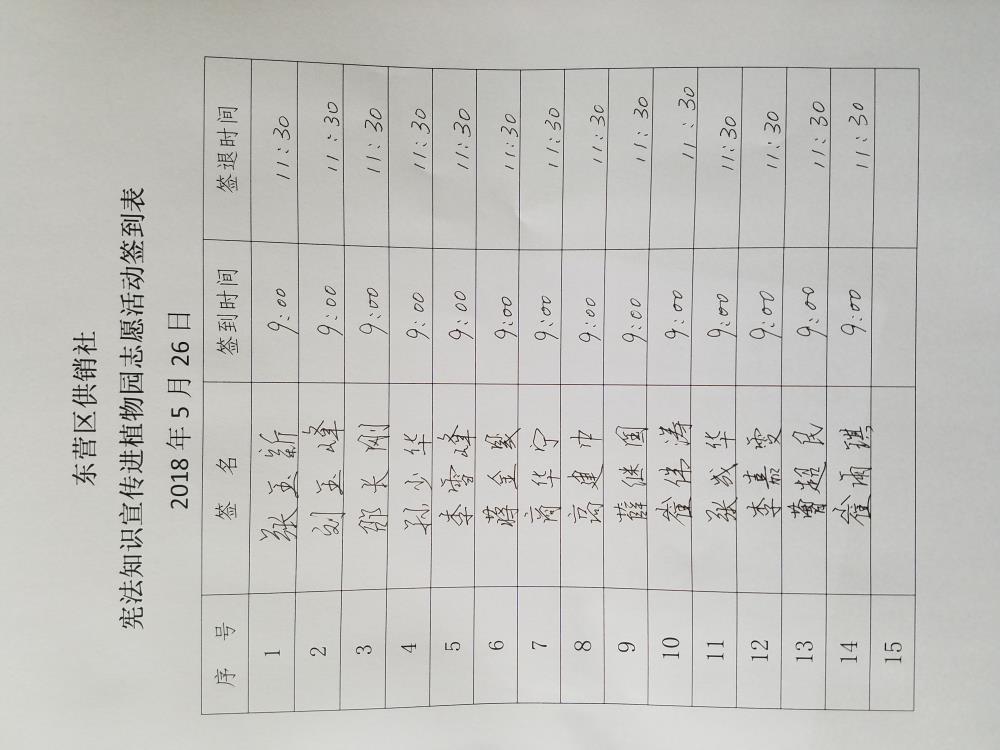 东营区供销社
宪法知识宣传进植物园志愿活动签到表
2018 年 5 月 26 日
序 号 签 名 签到时间 签退时间
1 张玉新 9:00 11:30
2 刘玉峰 9:00 11:30
3 邵长刚 9:00 11:30
4 孙少华 9:00 11:30
5 李雪峰 9:00 11:30
6 蒋金凤 9:00 11:30
7 商华宁 9:00 11:30
8 高建中 9:00 11:30
9 薛继国 9:00 11:30
10 崔伟涛 9:00 11:30
11 张成华 9:00 11:30
12 李嘉雯 9:00 11:30
13 曹超民 9:00 11:30
14 崔雨琪 9:00 11:30
15